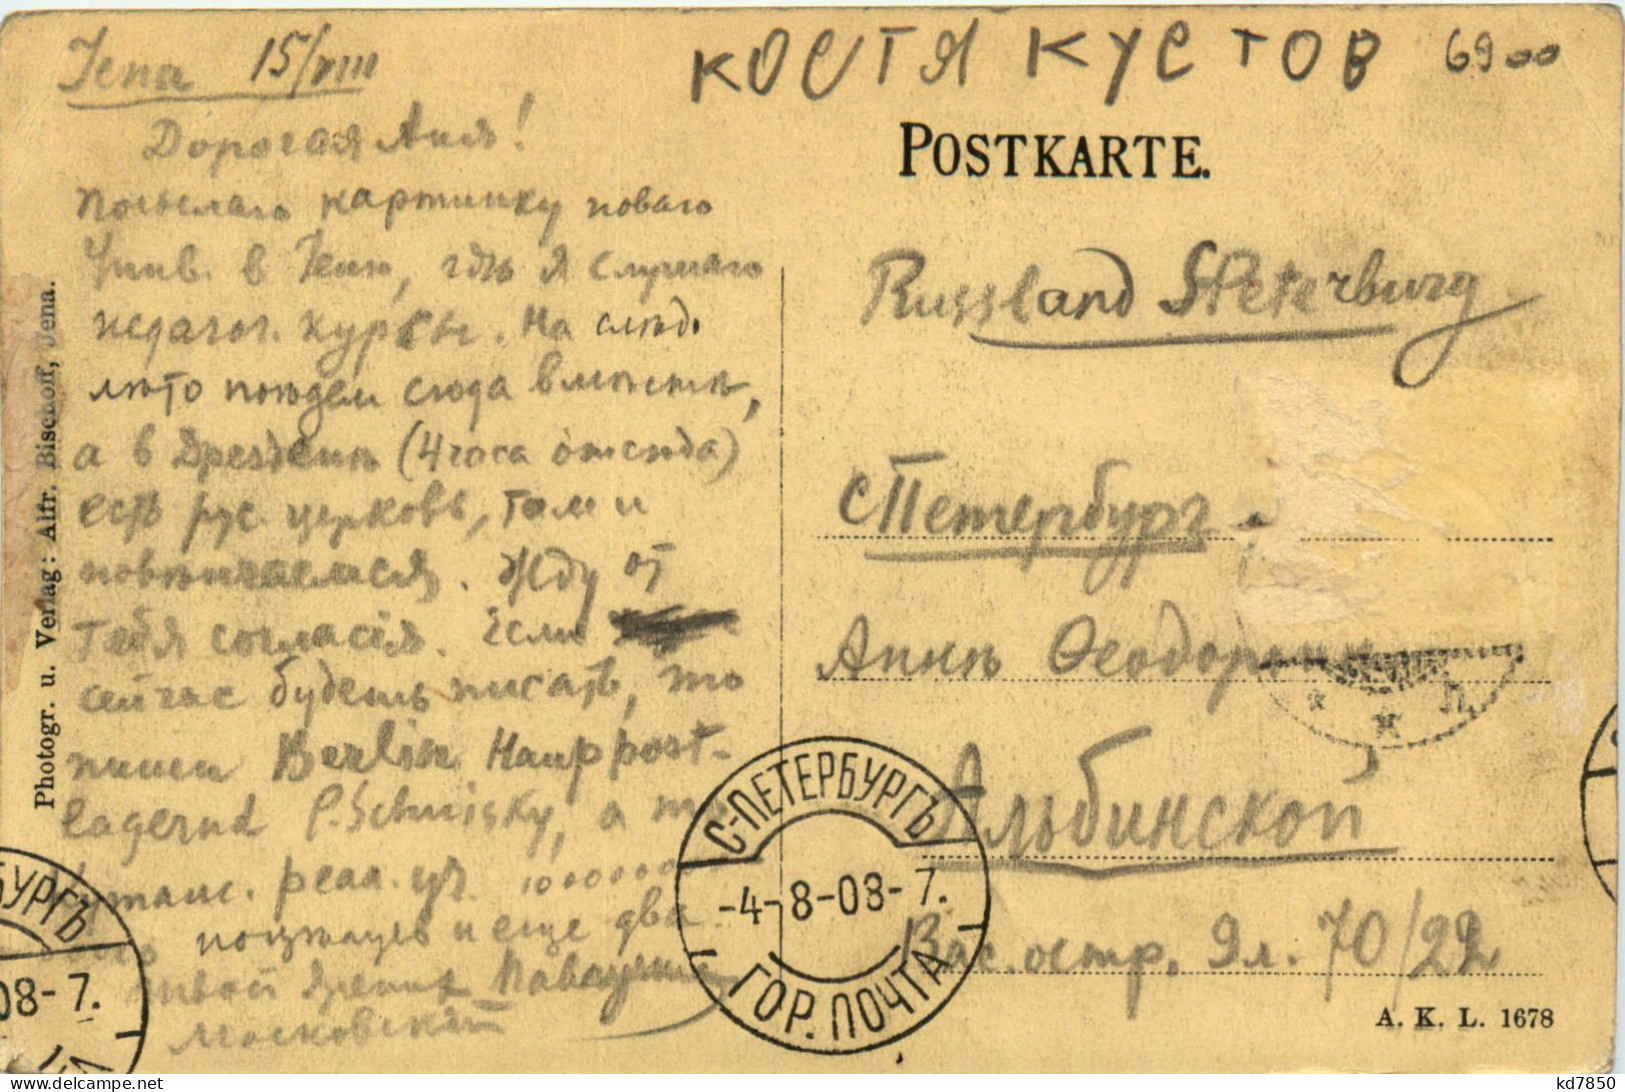 Jena 15/VIII
КОСТЯ КУСТОВ 6900
POSTKARTE.
Дорогая Аня!
посылаю картинку новаго
Унив. в Јене, гдѣ я слушаю
педагог. курсы. На слѣд.
лѣто поѣдем сюда вмѣстѣ,
а в Дрезденѣ (4 часа отсюда)
есть рус. церковь, там и
повѣнчаемся. Жду от
тебя согласія. Если
сейчас будешь писать, то
пиши Berlin Hauptpost-
lagernd P. Schmisky, а
реал. уч. 1000000
поцѣлуев и еще два
твой
Московскій
Russland St Peterburg
С Петербургъ
Аннѣ Ѳеодоровнѣ
Альбинской
Вас. остр. 9 л. 70/22
С-ПЕТЕРБУРГЪ
-4-8-08-7.
ГОР. ПОЧТА
БУРГЪ
08-7.
Photogr. u. Verlag: Alfr. Bischoff, Jena.
A. K. L. 1678
http://www.delcampe.net
kd7850